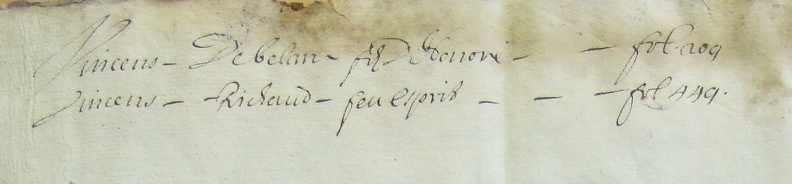 Vincens – Debelin – fis D'Henori – – fol. 209
Vincens – Richaud – feu Esprit – – – fol 449.